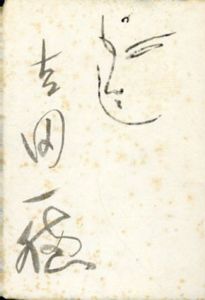 吉田一穂